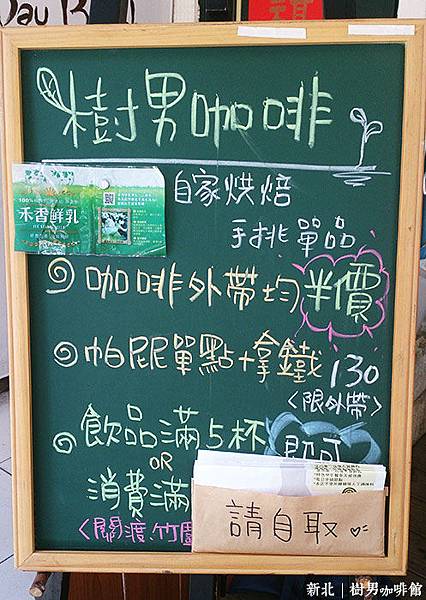 樹男咖啡
自家烘焙
手挑單品
100%
禾香鮮乳
咖啡外帶均半價
帕妮單點+拿鐵130
<限外帶>
飲品滿5杯即可
OR
消費滿
<關渡.竹圍
請自取
新北|樹男咖啡館